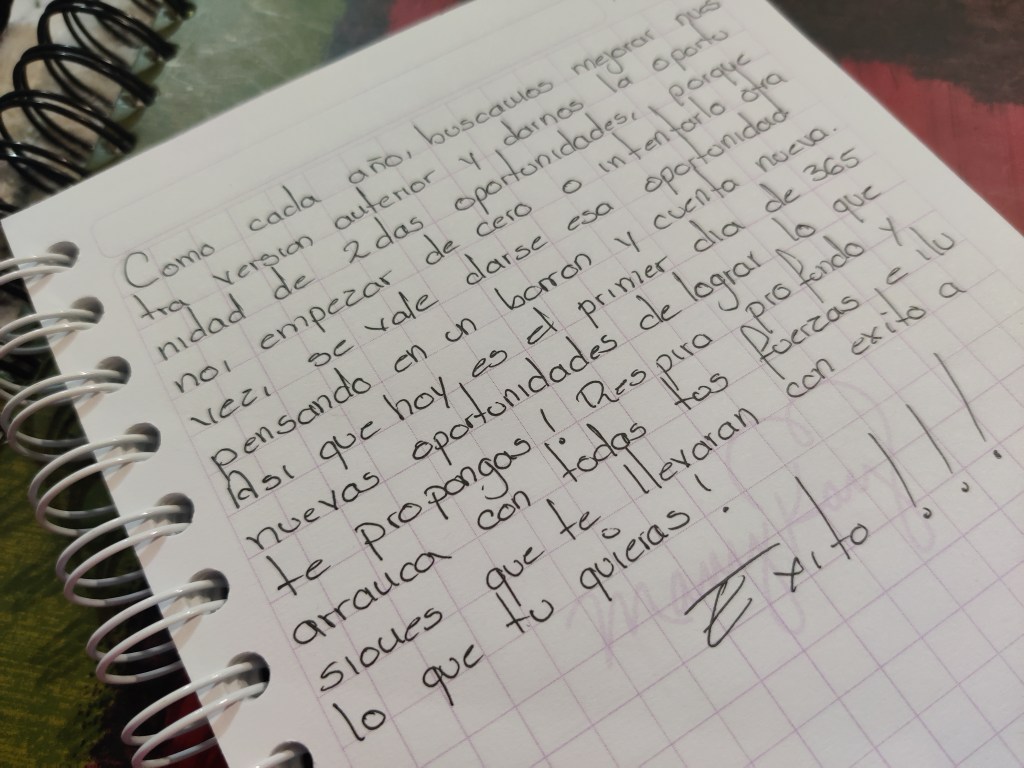 Como cada año, buscamos mejorar nues
tra version anterior y darnos la oportu
nidad de 2das oportunidades, porque
no, empezar de cero o intentarlo otra
vez, se vale darse esa oportunidad
pensando en un borron y cuenta nueva.
Asi que hoy es el primer dia de 365
nuevas oportunidades de lograr lo que
te propongas! Respira profundo y
arranca con todas tus fuerzas e ilu
siones que te llevaran con exito a
lo que tu quieras!
Exito!!!